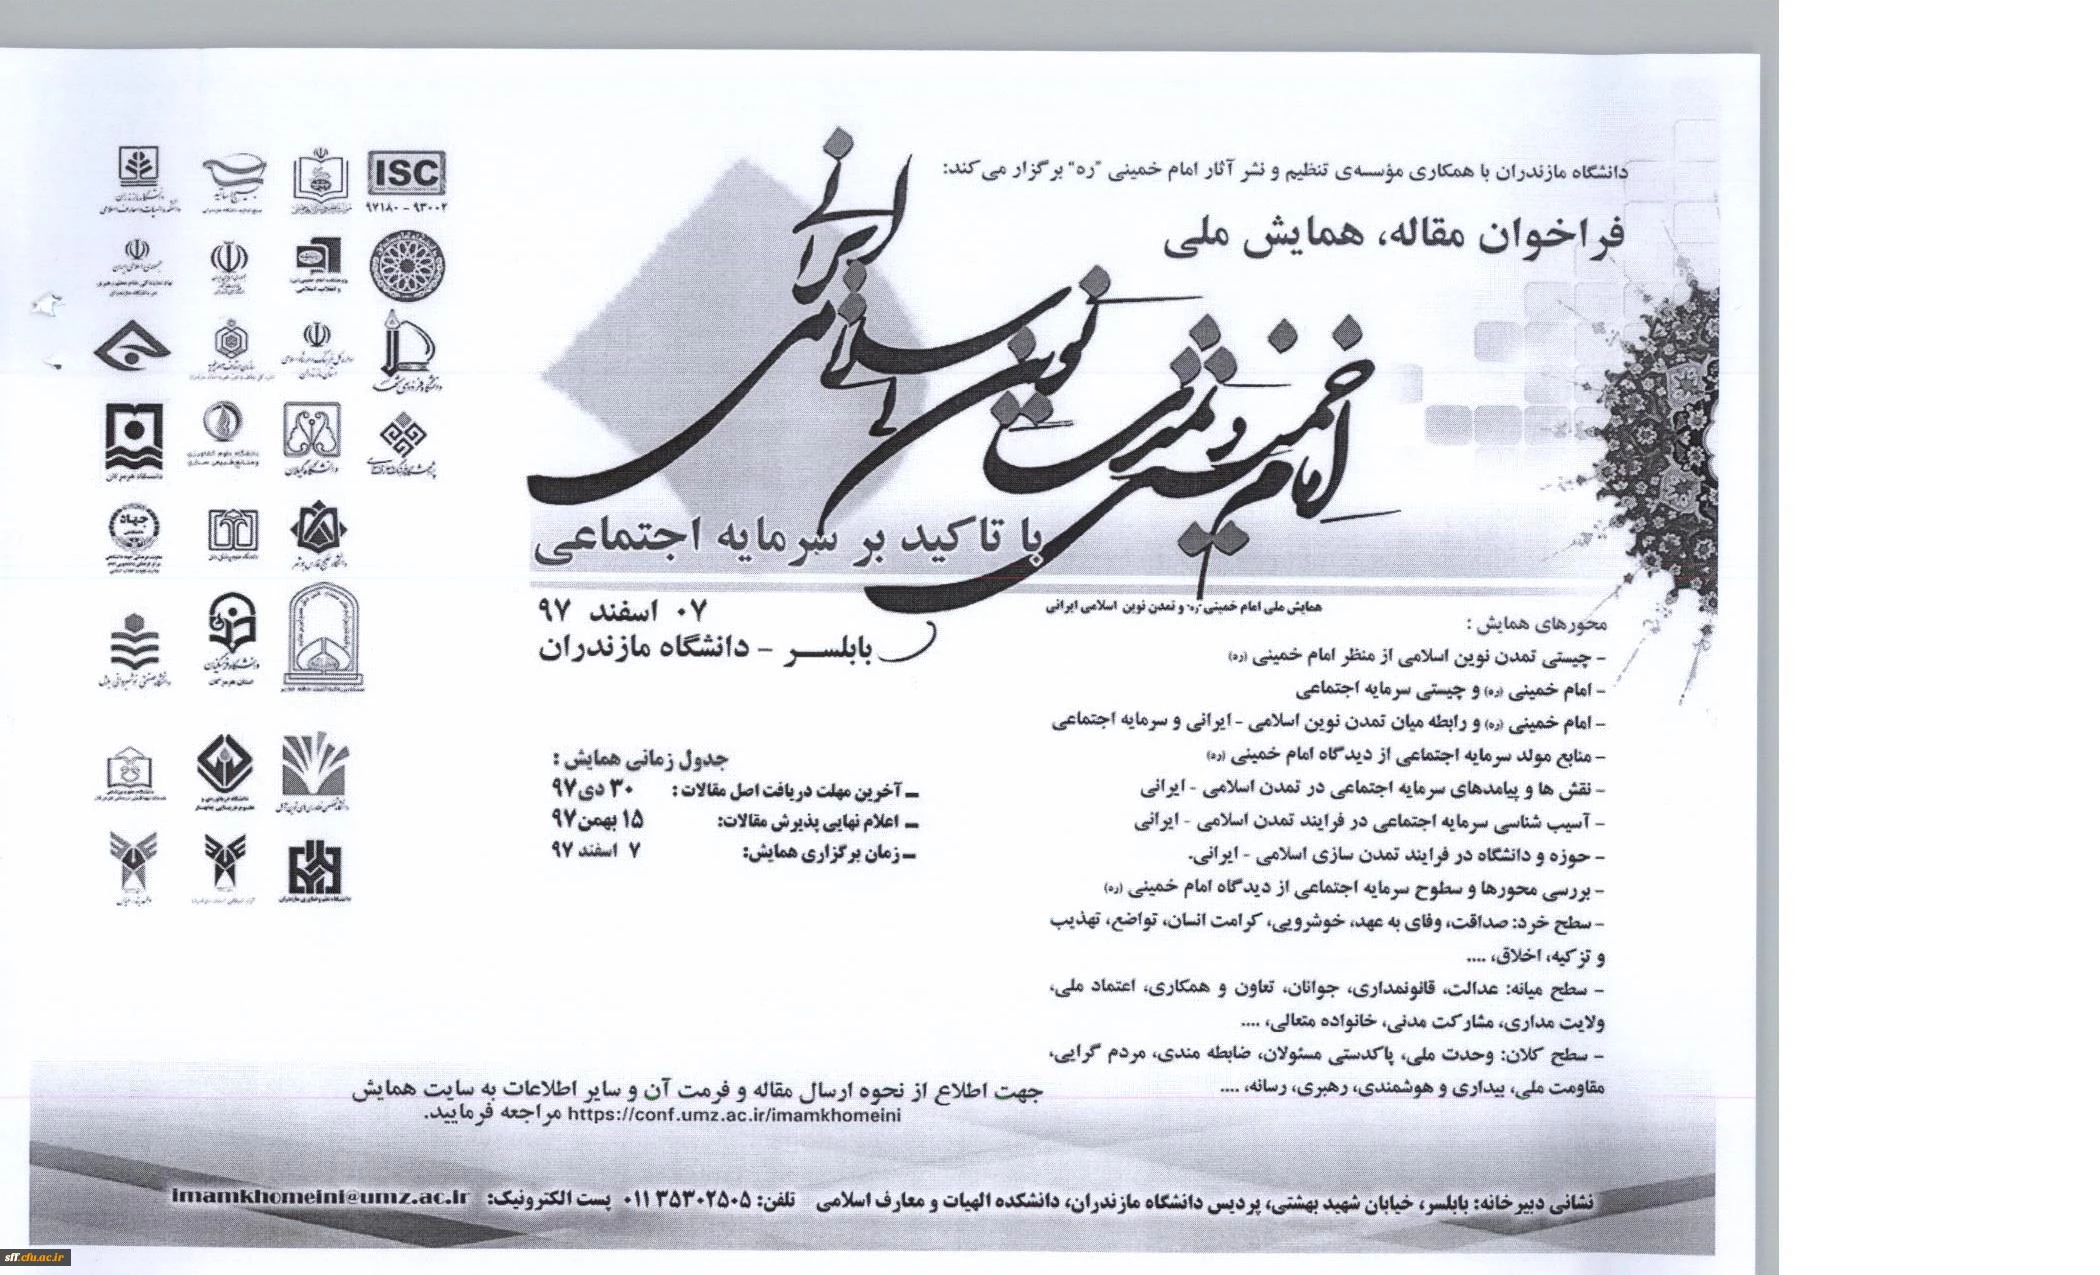 دانشگاه مازندران با همکاری مؤسسه‌ی تنظیم و نشر آثار امام خمینی "ره" برگزار می‌کند:
فراخوان مقاله، همایش ملی
امام خمینی و تمدن نوین اسلامی ایرانی
با تاکید بر سرمایه اجتماعی
همایش ملی امام خمینی "ره" و تمدن نوین اسلامی ایرانی
۰۷ اسفند ۹۷
بابلسر - دانشگاه مازندران
محورهای همایش :
- چیستی تمدن نوین اسلامی از منظر امام خمینی (ره)
- امام خمینی (ره) و چیستی سرمایه اجتماعی
- امام خمینی (ره) و رابطه میان تمدن نوین اسلامی - ایرانی و سرمایه اجتماعی
- منابع مولد سرمایه اجتماعی از دیدگاه امام خمینی (ره)
- نقش ها و پیامدهای سرمایه اجتماعی در تمدن اسلامی - ایرانی
- آسیب شناسی سرمایه اجتماعی در فرایند تمدن اسلامی - ایرانی
- حوزه و دانشگاه در فرایند تمدن سازی اسلامی - ایرانی.
- بررسی محورها و سطوح سرمایه اجتماعی از دیدگاه امام خمینی (ره)
- سطح خرد: صداقت، وفای به عهد، خوشرویی، کرامت انسان، تواضع، تهذیب
و تزکیه، اخلاق، ....
- سطح میانه: عدالت، قانونمداری، جوانان، تعاون و همکاری، اعتماد ملی،
ولایت مداری، مشارکت مدنی، خانواده متعالی، ....
- سطح کلان: وحدت ملی، پاکدستی مسئولان، ضابطه مندی، مردم گرایی،
مقاومت ملی، بیداری و هوشمندی، رهبری، رسانه، ....
جدول زمانی همایش :
- آخرین مهلت دریافت اصل مقالات : ۳۰ دی ۹۷
- اعلام نهایی پذیرش مقالات: ۱۵ بهمن ۹۷
- زمان برگزاری همایش: ۷ اسفند ۹۷
ISC
۹۷۱۸۰ - ۹۳۰۰۲
جهت اطلاع از نحوه ارسال مقاله و فرمت آن و سایر اطلاعات به سایت همایش
https://conf.umz.ac.ir/imamkhomeini مراجعه فرمایید.
نشانی دبیرخانه: بابلسر، خیابان شهید بهشتی، پردیس دانشگاه مازندران، دانشکده الهیات و معارف اسلامی تلفن: ۳۵۳۰۲۵۰۵ ۰۱۱ پست الکترونیک: imamkhomeini@umz.ac.ir
slf.cfu.ac.ir